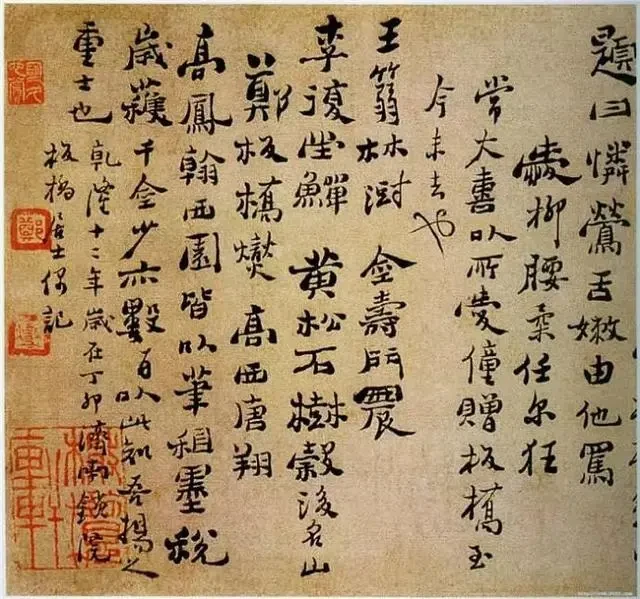 題曰憐鶯舌嫩由他罵
愛柳腰柔任尔狂
常大喜以所愛僮贈板橋至
今未去也
王篛林澍 金壽門農
李復堂鱓 黃松石樹穀後名山
鄭板橋燮 高西唐翔
高鳳翰西園皆以筆租墨稅
歲穫千金少亦數百以此知吾揚之
重士也
乾隆十二年歲在丁卯濟南鎖院
板橋居士偶記
鄭
燮